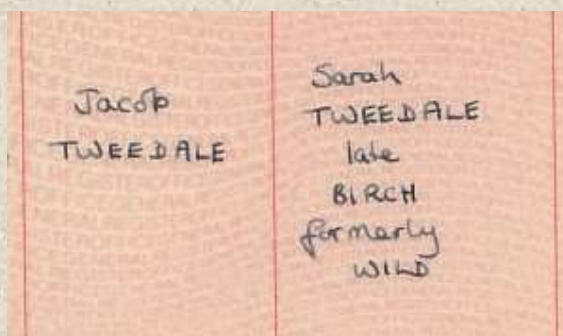 Jacob
TWEEDALE
Sarah
TWEEDALE
late
BIRCH
formerly
WILD